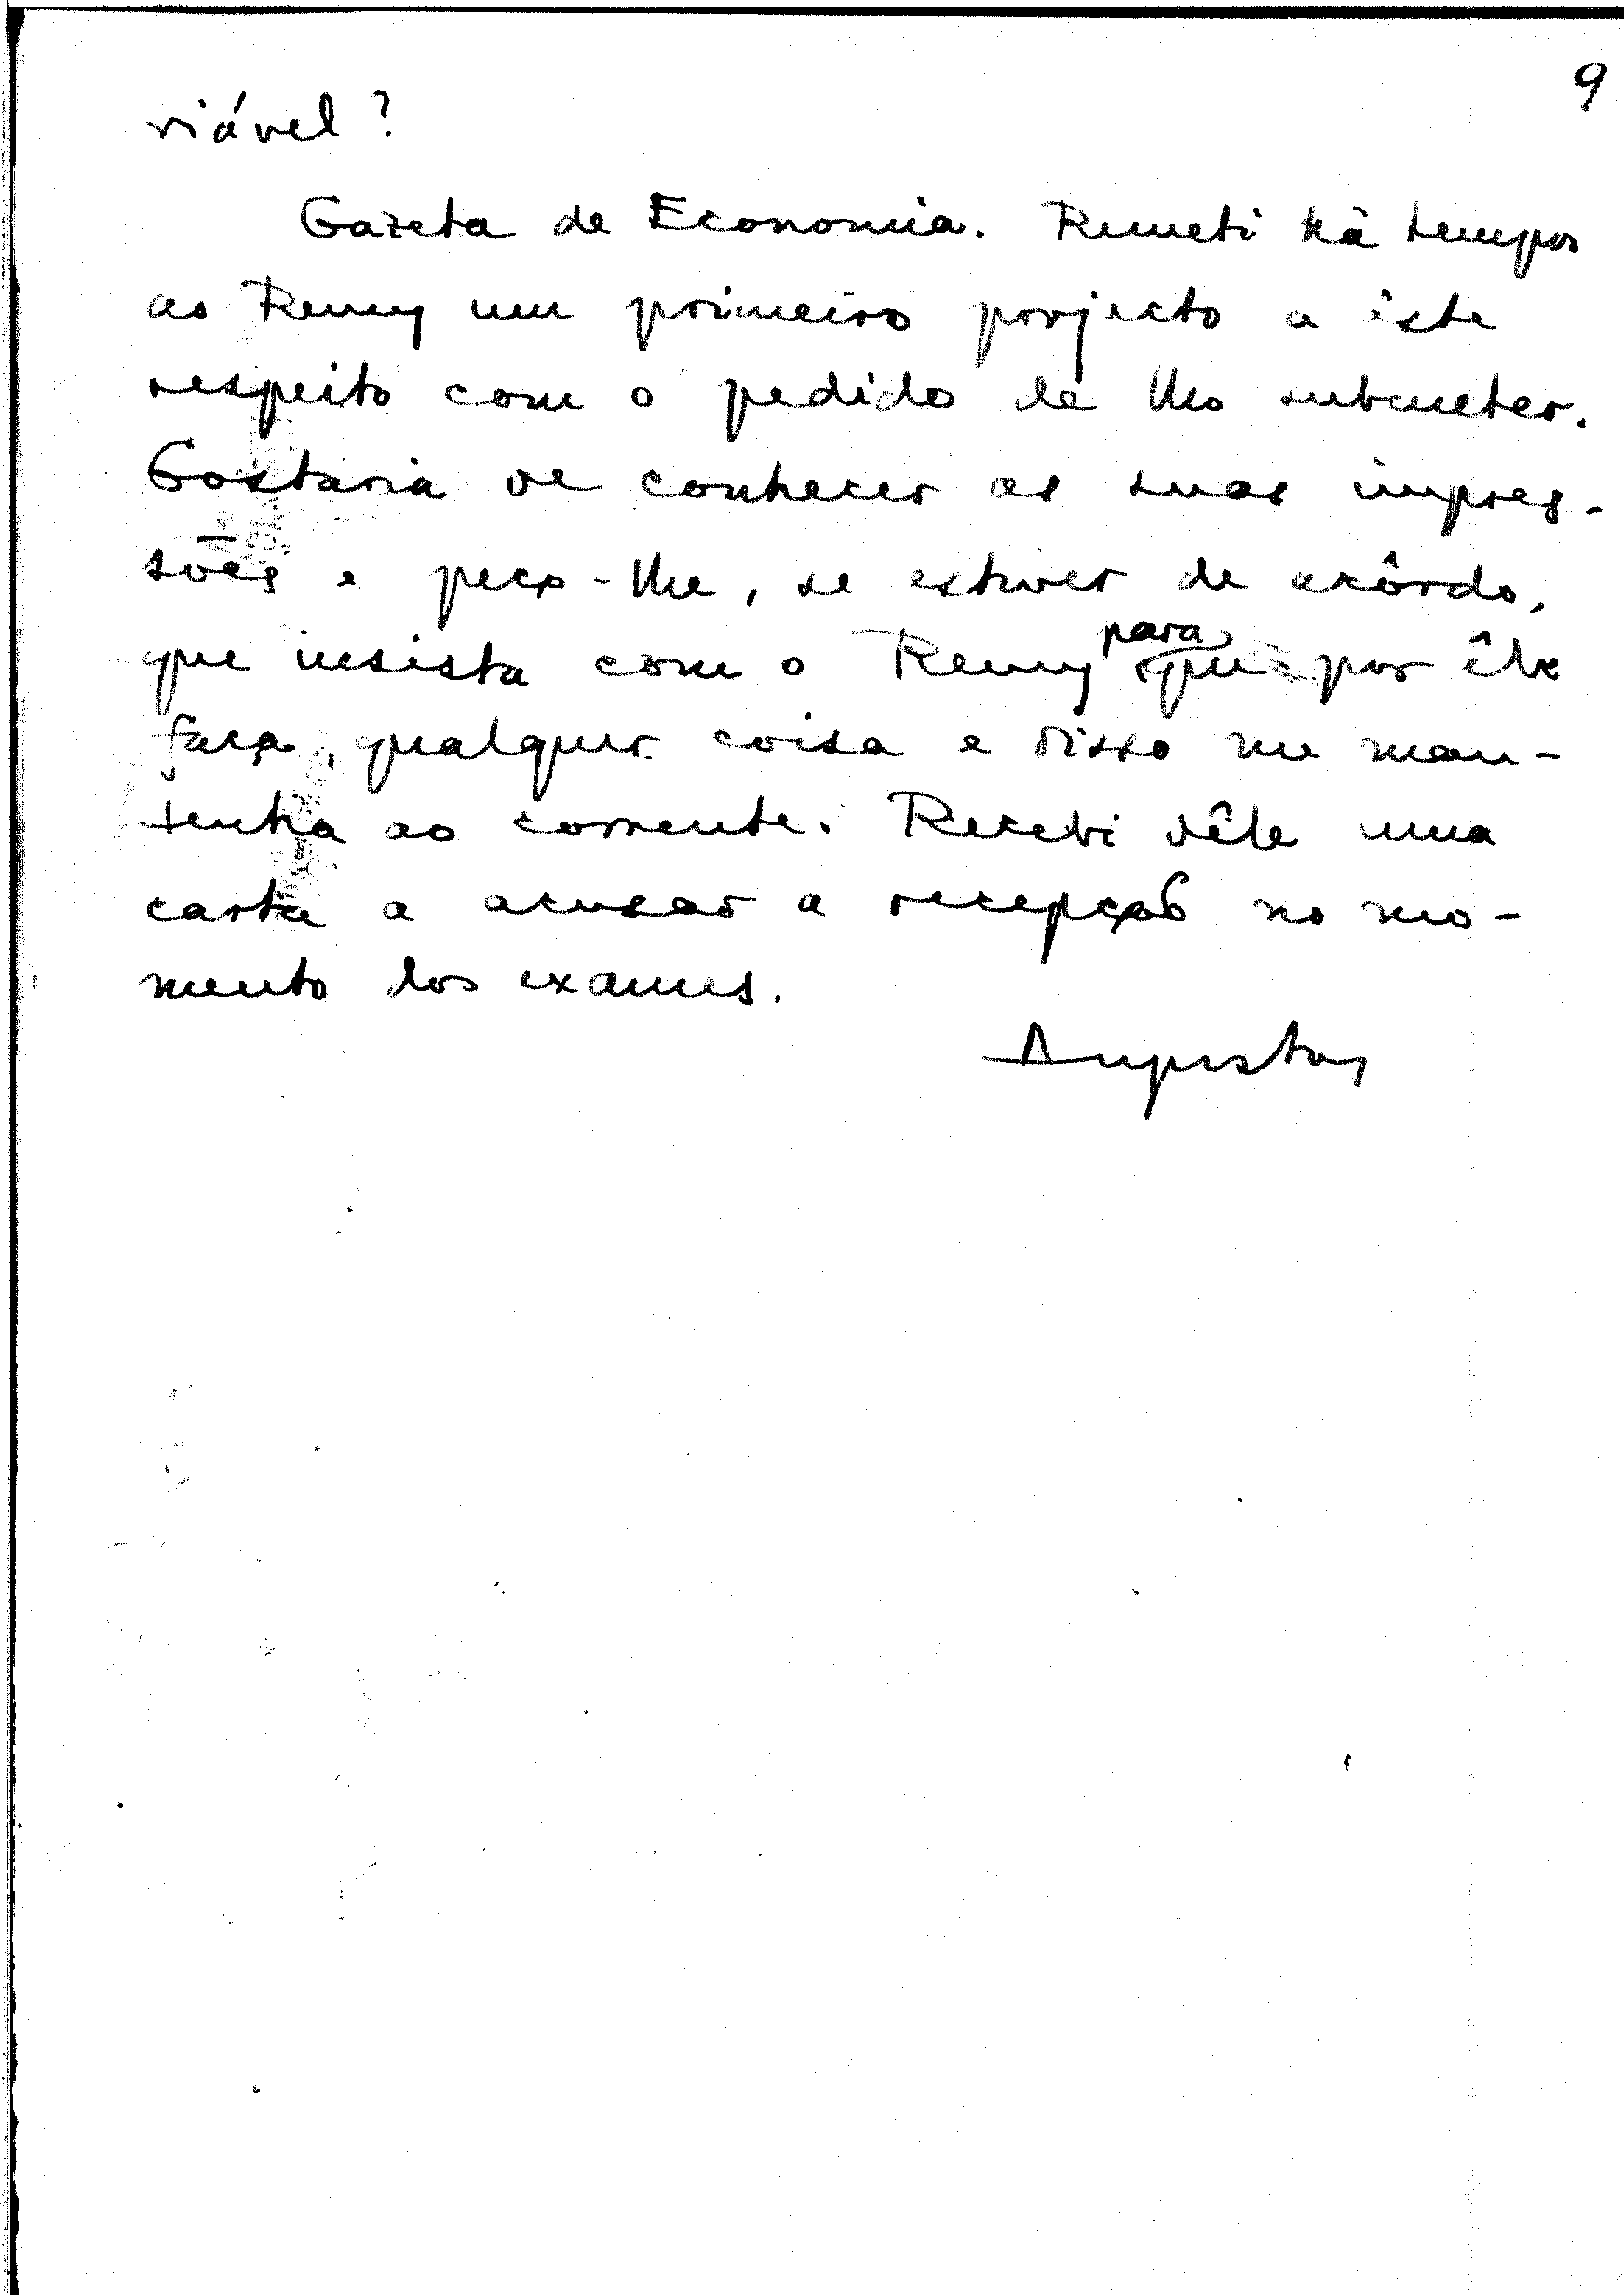 9
viável?
Gazeta de Economia. Remeti há tempos
ao Remy um primeiro projecto a êste
respeito com o pedido de lho submeter.
Gostaria de conhecer as suas impres-
sões e peço-lhe, se estiver de acôrdo,
que insista com o Remy para que por êle
faça, qualquer coisa e disso me man-
tenha ao corrente. Recebi dêle uma
carta a acusar a recepção no mo-
mento dos exames.